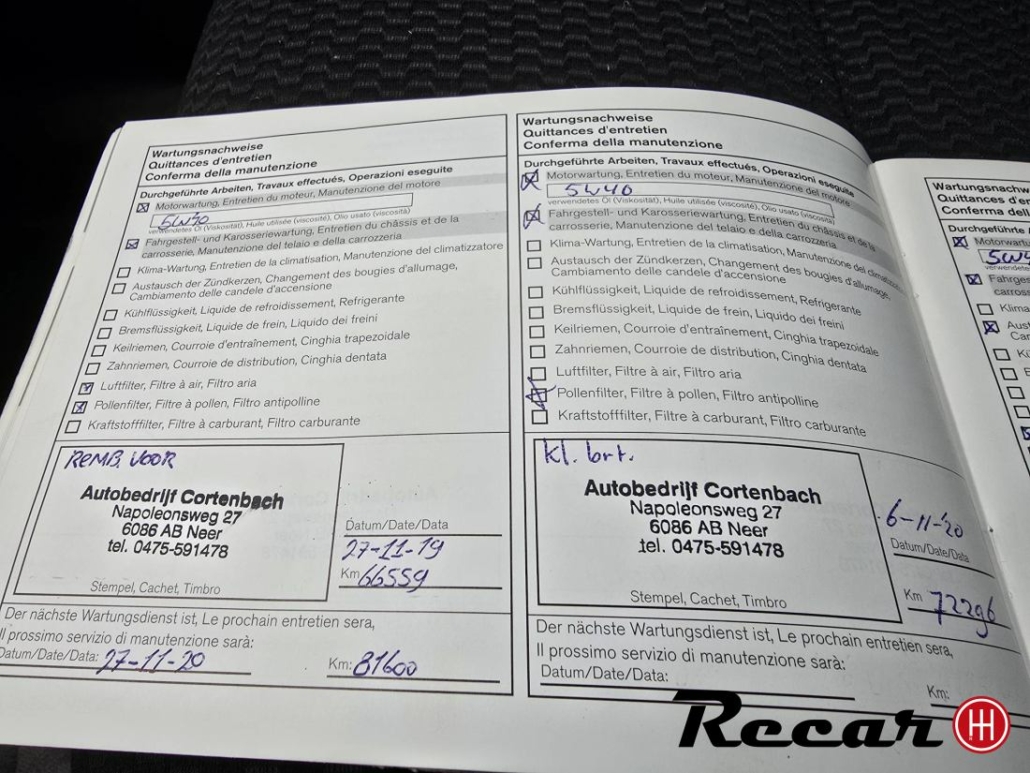 Wartungsnachweise
Quittances d'entretien
Conferma della manutenzione
Durchgeführte Arbeiten, Travaux effectués, Operazioni eseguite
Motorwartung, Entretien du moteur, Manutenzione del motore
verwendetes Öl (Viskosität), Huile utilisée (viscosité), Olio usato (viscosità)
Fahrgestell- und Karosseriewartung, Entretien du châssis et de la
carrosserie, Manutenzione del telaio e della carrozzeria
Klima-Wartung, Entretien de la climatisation, Manutenzione del climatizzatore
Austausch der Zündkerzen, Changement des bougies d'allumage,
Cambiamento delle candele d'accensione
Kühlflüssigkeit, Liquide de refroidissement, Refrigerante
Bremsflüssigkeit, Liquide de frein, Liquido dei freini
Keilriemen, Courroie d'entraînement, Cinghia trapezoidale
Zahnriemen, Courroie de distribution, Cinghia dentata
Luftfilter, Filtre à air, Filtro aria
Pollenfilter, Filtre à pollen, Filtro antipolline
Kraftstofffilter, Filtre à carburant, Filtro carburante
REMB. VOOR
Autobedrijf Cortenbach
Napoleonsweg 27
6086 AB Neer
tel. 0475-591478
Stempel, Cachet, Timbro
Datum/Date/Data
27-11-19
Km 66559
Der nächste Wartungsdienst ist, Le prochain entretien sera,
Il prossimo servizio di manutenzione sarà:
Datum/Date/Data: 27-11-20 Km: 81600
Wartungsnachweise
Quittances d'entretien
Conferma della manutenzione
Durchgeführte Arbeiten, Travaux effectués, Operazioni eseguite
Motorwartung, Entretien du moteur, Manutenzione del motore
5W40
verwendetes Öl (Viskosität), Huile utilisée (viscosité), Olio usato (viscosità)
Fahrgestell- und Karosseriewartung, Entretien du châssis et de la
carrosserie, Manutenzione del telaio e della carrozzeria
Klima-Wartung, Entretien de la climatisation, Manutenzione del
Austausch der Zündkerzen, Changement des bougies d'allumage,
Cambiamento delle candele d'accensione
Kühlflüssigkeit, Liquide de refroidissement, Refrigerante
Bremsflüssigkeit, Liquide de frein, Liquido dei freini
Keilriemen, Courroie d'entraînement, Cinghia trapezoidale
Zahnriemen, Courroie de distribution, Cinghia dentata
Luftfilter, Filtre à air, Filtro aria
Pollenfilter, Filtre à pollen, Filtro antipolline
Kraftstofffilter, Filtre à carburant, Filtro carburante
kl. brt.
Autobedrijf Cortenbach
Napoleonsweg 27
6086 AB Neer
tel. 0475-591478
Stempel, Cachet, Timbro
6-11-'20
Datum/Date/Data
Km 72296
Der nächste Wartungsdienst ist, Le prochain entretien sera,
Il prossimo servizio di manutenzione sarà:
Datum/Date/Data:
Km:
Wartungsnachw
Quittances d'en
Conferma della
Durchgeführte A
Motorwartu
5W4
Fahrges
carross
Klima
Aust
Recar